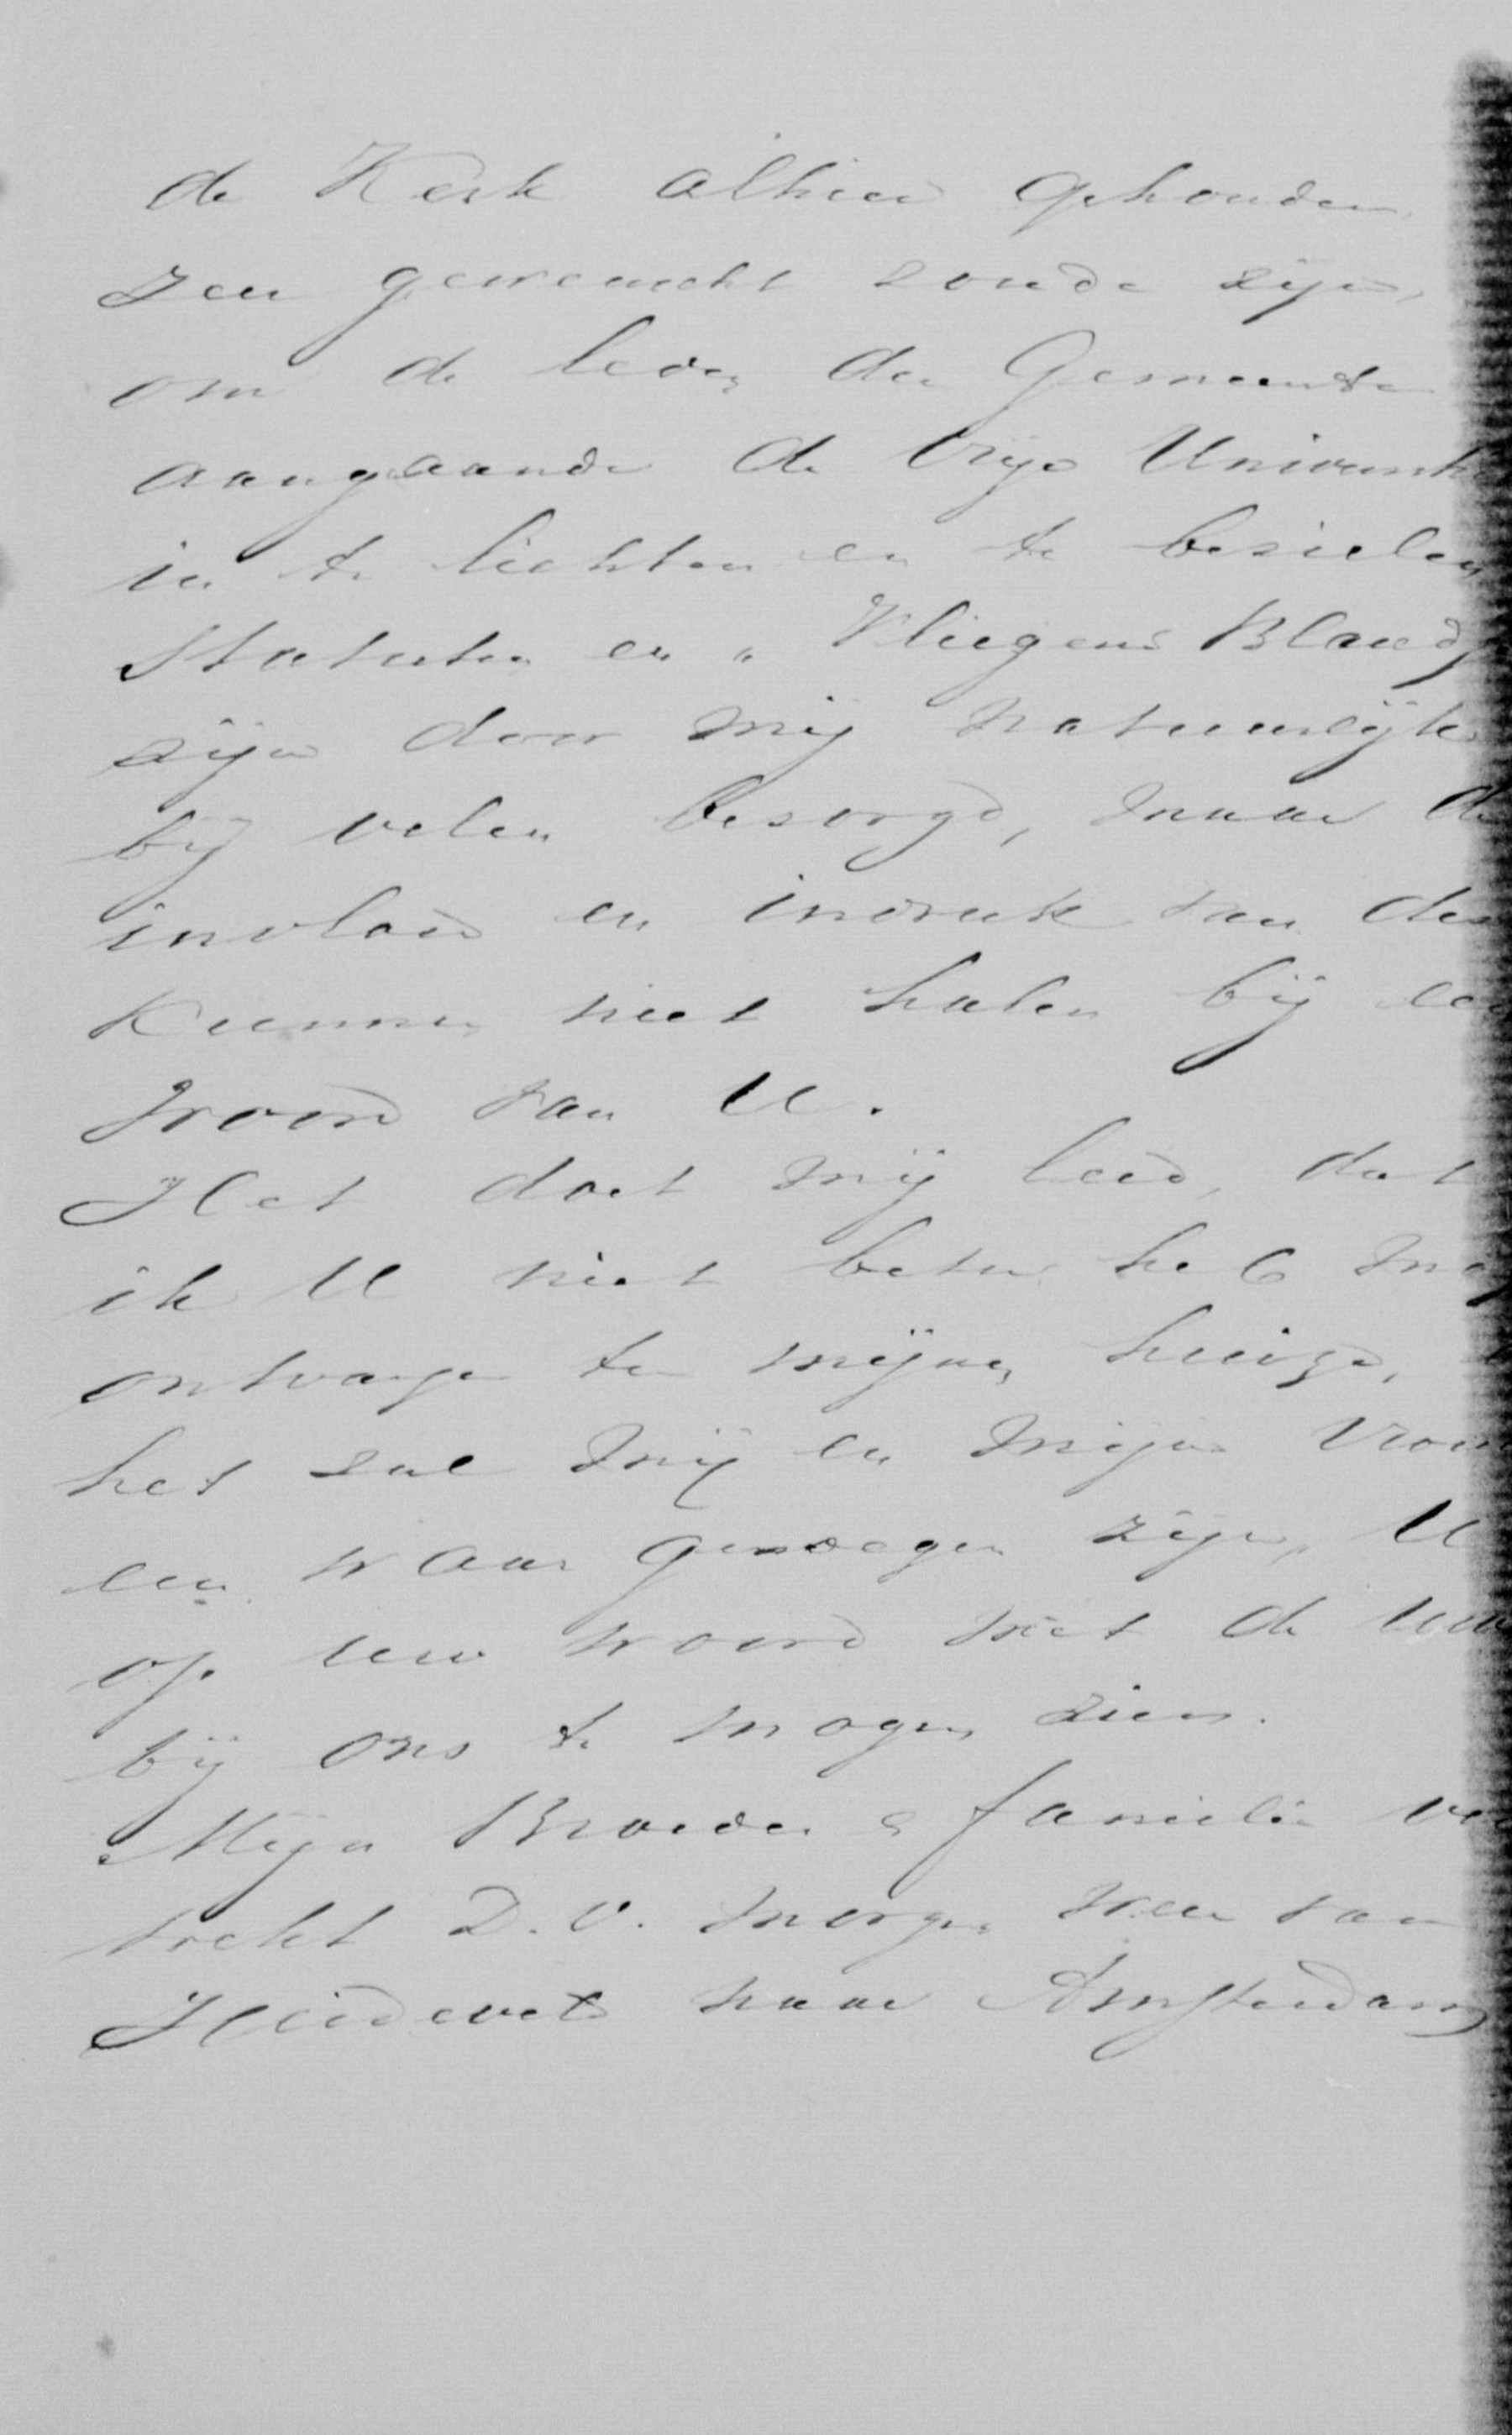 de Kerk alhier gehouden
zeer gewenscht zoude zijn,
om de leden der Gemeente
aangaande de Vrije Universite
in te lichten en te bezielen
Statuten en "Vliegend Blaadj
zijn door mij natuurlijk
bij velen bezorgd, maar de
invloed en indruk van de
kunnen niet halen bij een
woord van U.
Het doet mij leed, dat
ik U niet beter heb mog
ontvangen ten mijnen huize,
het zal mij en mijn Vrou
een waar genoegen zijn, U
op uw woord met de uw
bij ons te mogen zien.
Mijn Broeder & familie ve
trekt D.V. morgen weer van
naar Amsterdam